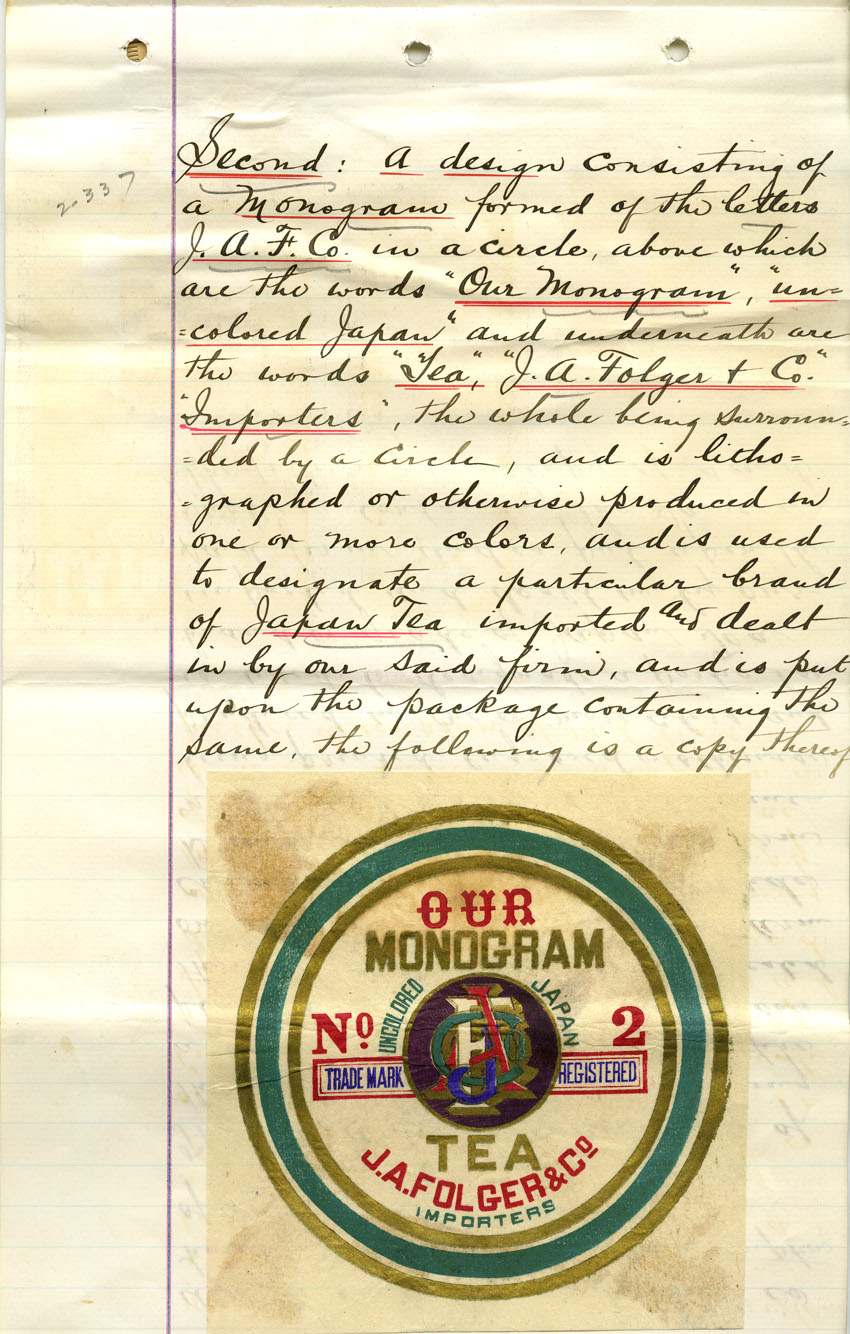 2337
Second: A design consisting of
a Monogram formed of the letters
J. A. F. Co. in a circle, above which
are the words "Our Monogram", "un=
=colored Japan" and underneath are
the words "Tea", "J. A. Folger & Co."
"Importers", the whole being surroun=
=ded by a circle, and is litho=
=graphed or otherwise produced in
one or more colors, and is used
to designate a particular brand
of Japan Tea imported and dealt
in by our said firm, and is put
upon the package containing the
same, the following is a copy thereof
OUR
MONOGRAM
UNCOLORED JAPAN
No 2
TRADE MARK REGISTERED
JAFCo
TEA
J.A.FOLGER & Co
IMPORTERS